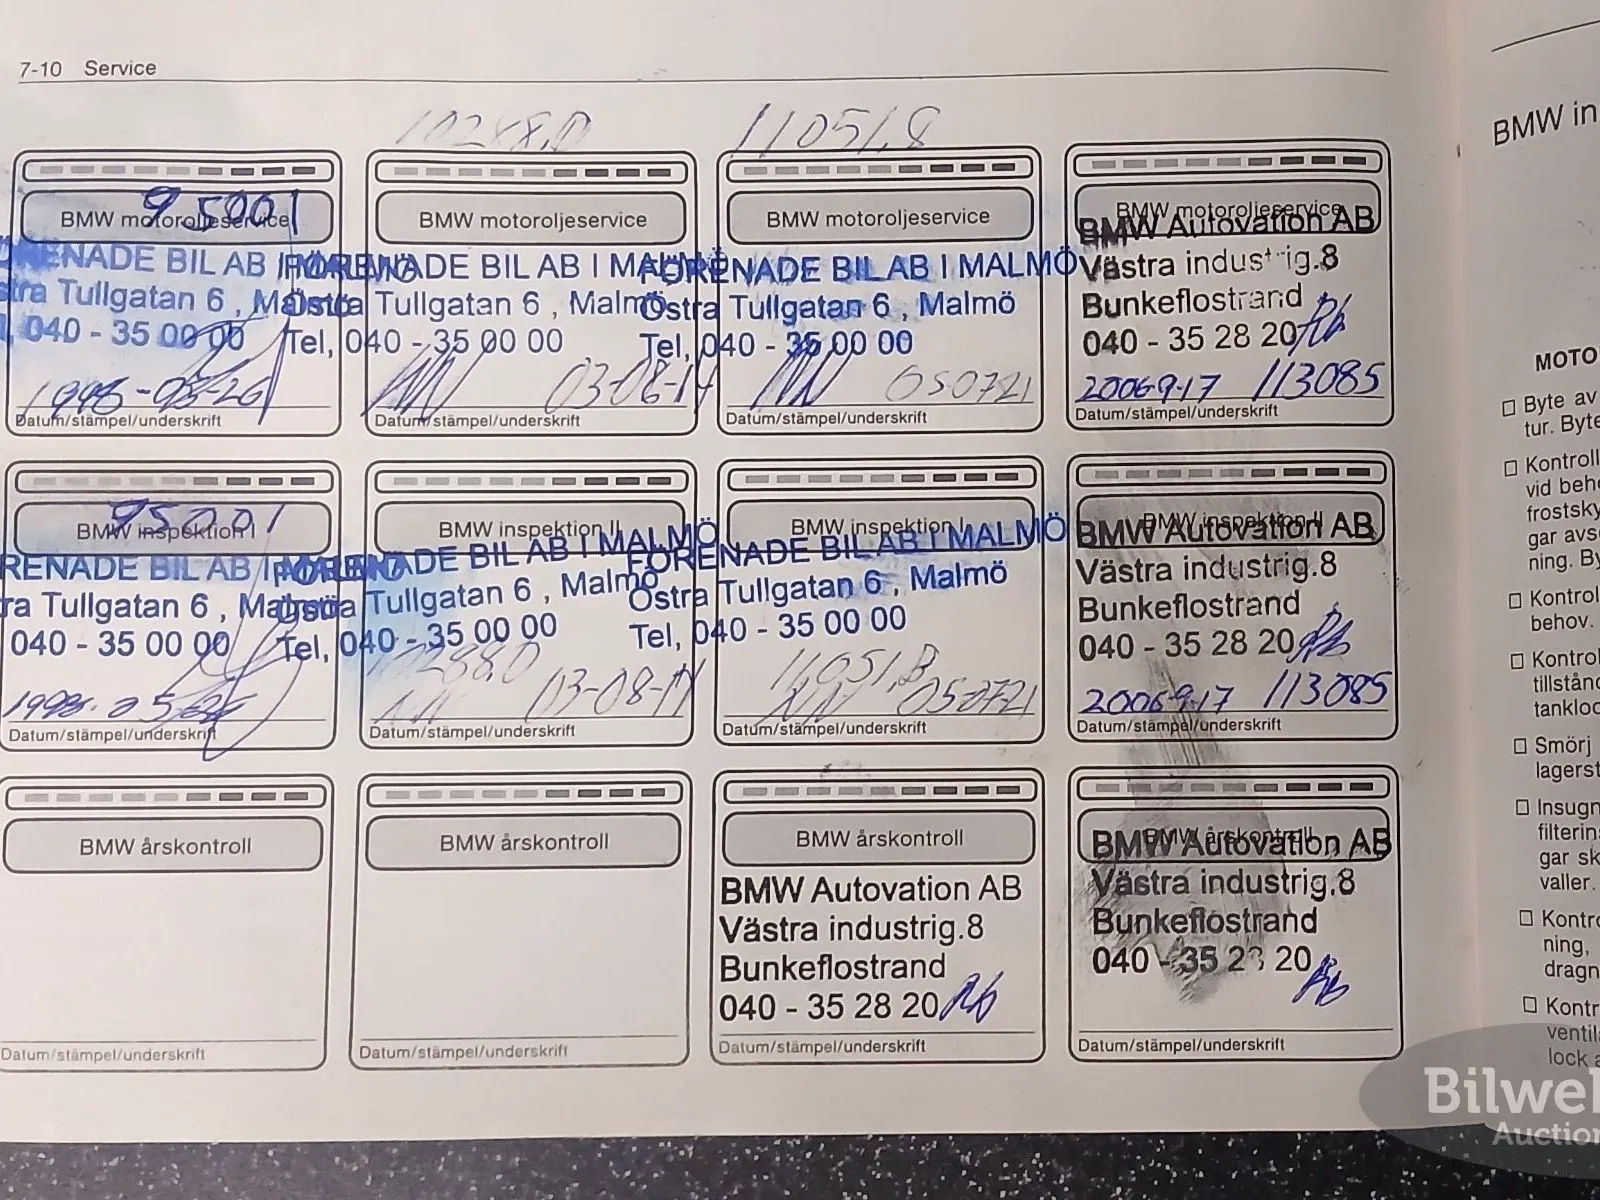 7-10 Service
10288,0
11051,8
95001
BMW motoroljeservice
FÖRENADE BIL AB I MALMÖ
Östra Tullgatan 6 , Malmö
040 - 35 00 00
Datum/stämpel/underskrift
BMW motoroljeservice
FÖRENADE BIL AB I MALMÖ
Östra Tullgatan 6 , Malmö
Tel, 040 - 35 00 00
03-08-14
Datum/stämpel/underskrift
BMW motoroljeservice
FÖRENADE BIL AB I MALMÖ
Östra Tullgatan 6 , Malmö
Tel, 040 - 35 00 00
050721
Datum/stämpel/underskrift
BMW motoroljeservice
BMW Autovation AB
Västra industrig.8
Bunkeflostrand
040 - 35 28 20
2006917 113085
Datum/stämpel/underskrift
95001
BMW inspektion I
RENADE BIL AB I MALMÖ
ra Tullgatan 6 , Malmö
040 - 35 00 00
Datum/stämpel/underskrift
BMW inspektion II
FÖRENADE BIL AB I MALMÖ
Östra Tullgatan 6 , Malmö
Tel, 040 - 35 00 00
10288,0
03-08-14
Datum/stämpel/underskrift
BMW inspektion I
FÖRENADE BIL AB I MALMÖ
Östra Tullgatan 6 , Malmö
Tel, 040 - 35 00 00
11051,8
050721
Datum/stämpel/underskrift
BMW inspektion II
BMW Autovation AB
Västra industrig.8
Bunkeflostrand
040 - 35 28 20
2006917 113085
Datum/stämpel/underskrift
BMW årskontroll
Datum/stämpel/underskrift
BMW årskontroll
Datum/stämpel/underskrift
BMW årskontroll
BMW Autovation AB
Västra industrig.8
Bunkeflostrand
040 - 35 28 20
Datum/stämpel/underskrift
BMW årskontroll
BMW Autovation AB
Västra industrig.8
Bunkeflostrand
040 - 35 28 20
Datum/stämpel/underskrift
BMW in
MOTO
Byte av
tur. Byte
Kontroll
vid beh
frostsky
gar avs
ning. By
Kontrol
behov.
Kontrol
tillstånd
tanklo
Smörj
lagerst
Insugn
filterin
gar sk
valler.
Kontro
ning,
dragn
Kontr
ventil
lock a
Bilwe
Auction